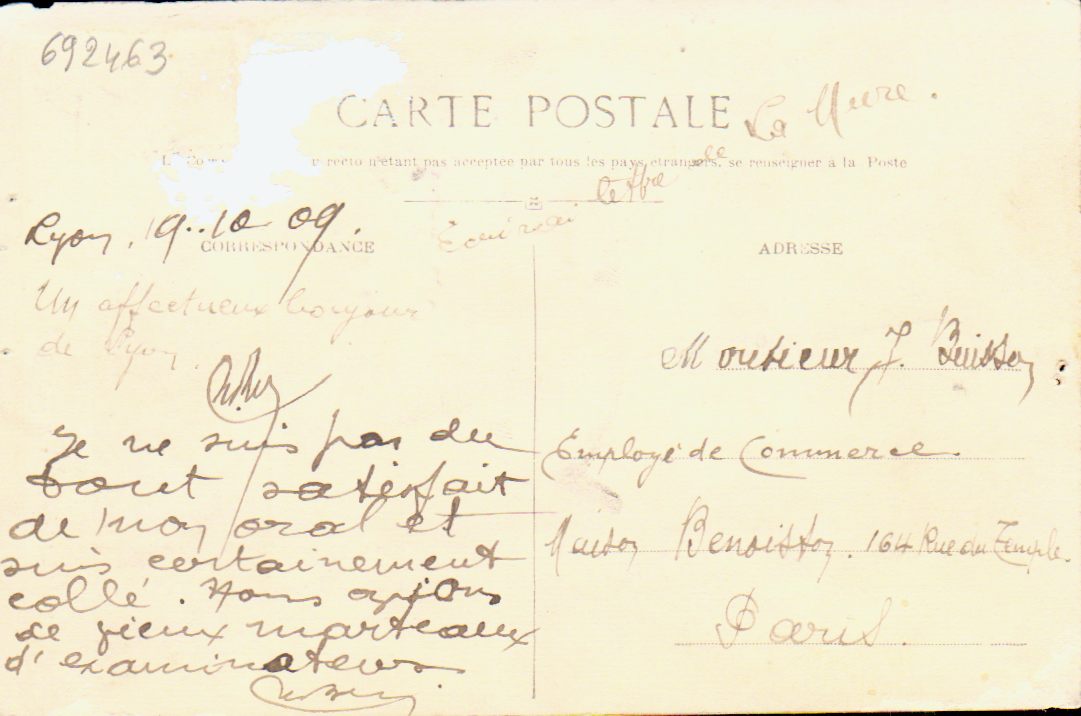 692463
CARTE POSTALE
La Mure.
recto n'étant pas acceptée par tous les pays étrangers, se renseigner à la Poste
de
lettre
Ecrirai
Lyon, 19.10 09.
CORRESPONDANCE
ADRESSE
Un affectueux bonjour
de Lyon.
Je ne suis pas du
tout satisfait
de mon oral et
suis certainement
collé. Nous avions
de vieux marteaux
d'examinateurs
Monsieur J. Buisson
Employé de Commerce.
Maison Benoiston. 164 Rue du Temple.
Paris.